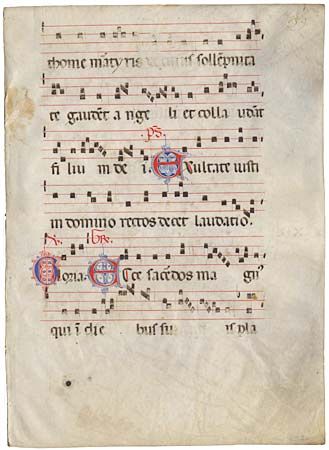 thome māтyris cuius sollēpnita
te gaudēt ange li et colla udāt
ps
fi liu m de i. Exultate iusti
in domino rectos decet laudatio.
Gr̄
Gloria. Ecce sacedos ma gnꝰ
qui ī die bus su is pla